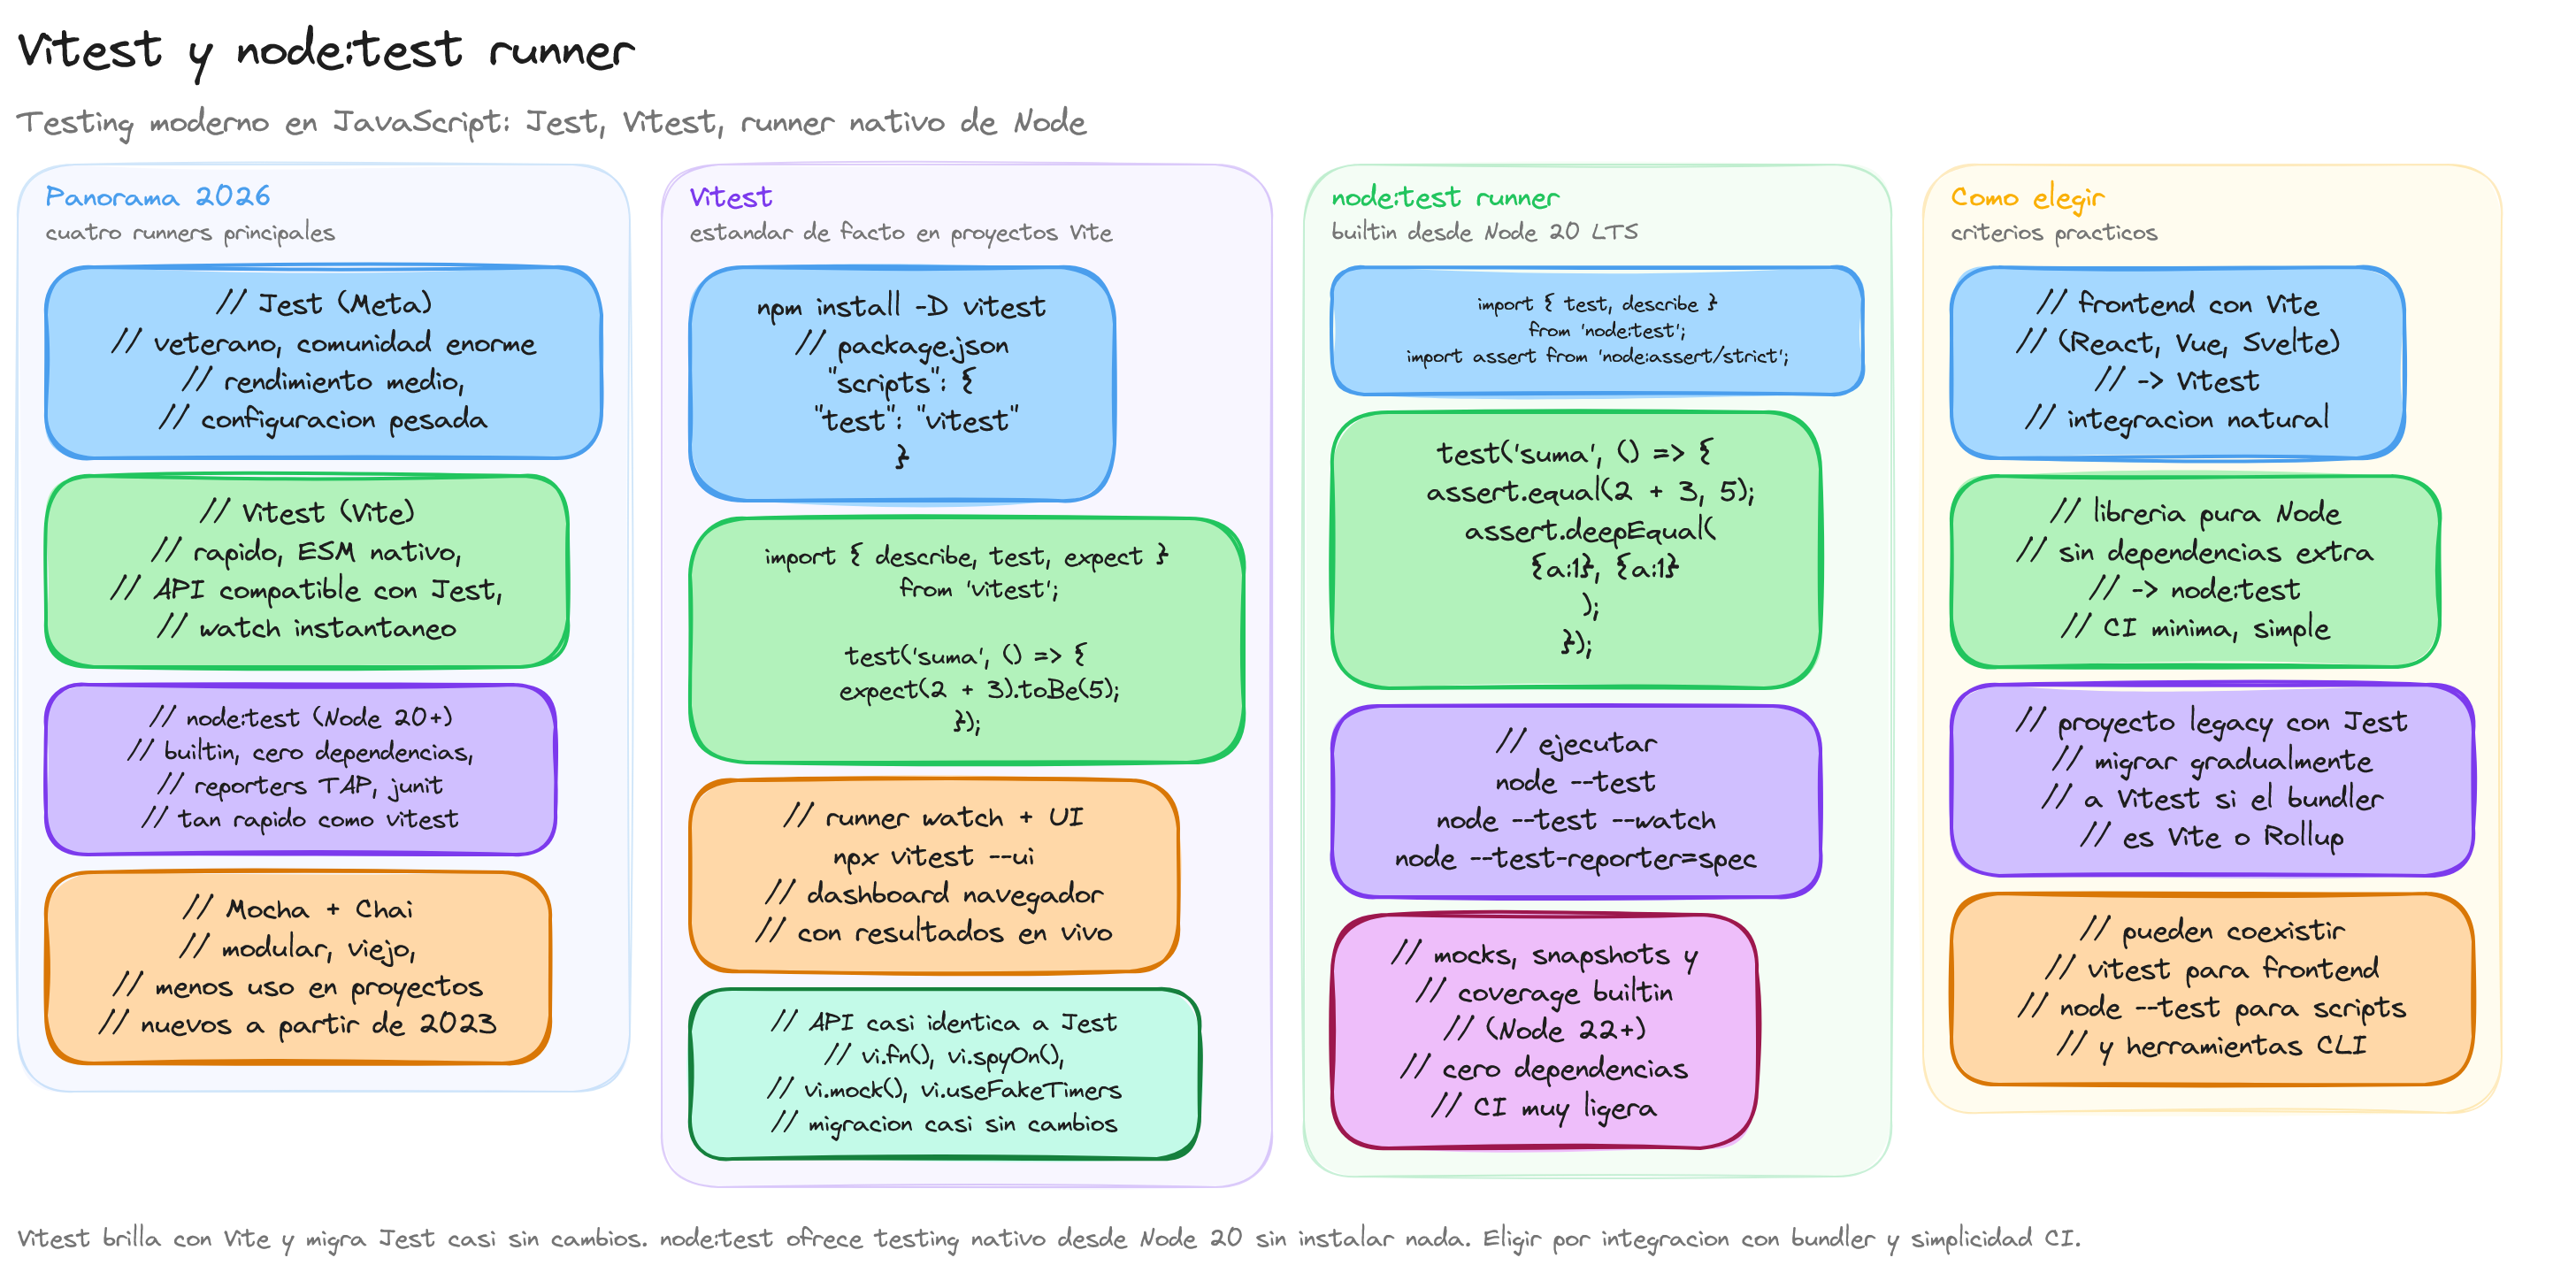 Vitest y node:test runner
Testing moderno en JavaScript: Jest, Vitest, runner nativo de Node
Panorama 2026
cuatro runners principales
// Jest (Meta)
// veterano, comunidad enorme
// rendimiento medio,
// configuracion pesada
// Vitest (Vite)
// rapido, ESM nativo,
// API compatible con Jest,
// watch instantaneo
// node:test (Node 20+)
// builtin, cero dependencias,
// reporters TAP, junit
// tan rapido como vitest
// Mocha + Chai
// modular, viejo,
// menos uso en proyectos
// nuevos a partir de 2023
Vitest
estandar de facto en proyectos Vite
npm install -D vitest
// package.json
"scripts": {
"test": "vitest"
}
import { describe, test, expect }
from 'vitest';
test('suma', () => {
expect(2 + 3).toBe(5);
});
// runner watch + UI
npx vitest --ui
// dashboard navegador
// con resultados en vivo
// API casi identica a Jest
// vi.fn(), vi.spyOn(),
// vi.mock(), vi.useFakeTimers
// migracion casi sin cambios
node:test runner
builtin desde Node 20 LTS
import { test, describe }
from 'node:test';
import assert from 'node:assert/strict';
test('suma', () => {
assert.equal(2 + 3, 5);
assert.deepEqual(
{a:1}, {a:1}
);
});
// ejecutar
node --test
node --test --watch
node --test-reporter=spec
// mocks, snapshots y
// coverage builtin
// (Node 22+)
// cero dependencias
// CI muy ligera
Como elegir
criterios practicos
// frontend con Vite
// (React, Vue, Svelte)
// -> Vitest
// integracion natural
// libreria pura Node
// sin dependencias extra
// -> node:test
// CI minima, simple
// proyecto legacy con Jest
// migrar gradualmente
// a Vitest si el bundler
// es Vite o Rollup
// pueden coexistir
// vitest para frontend
// node --test para scripts
// y herramientas CLI
Vitest brilla con Vite y migra Jest casi sin cambios. node:test ofrece testing nativo desde Node 20 sin instalar nada. Eligir por integracion con bundler y simplicidad CI.